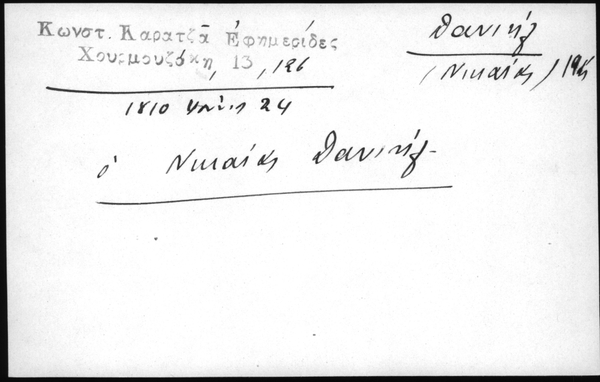 Κωνστ. Καρατζᾶ Ἐφημερίδες
Χουρμουζάκη 13, 126
Δανιήλ
(Νικαίας)
1810 24
ὁ Νικαίας Δανιήλ